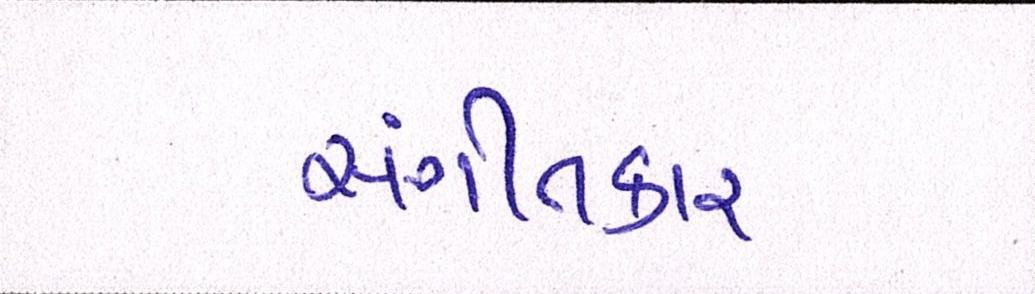 સંગીતકાર